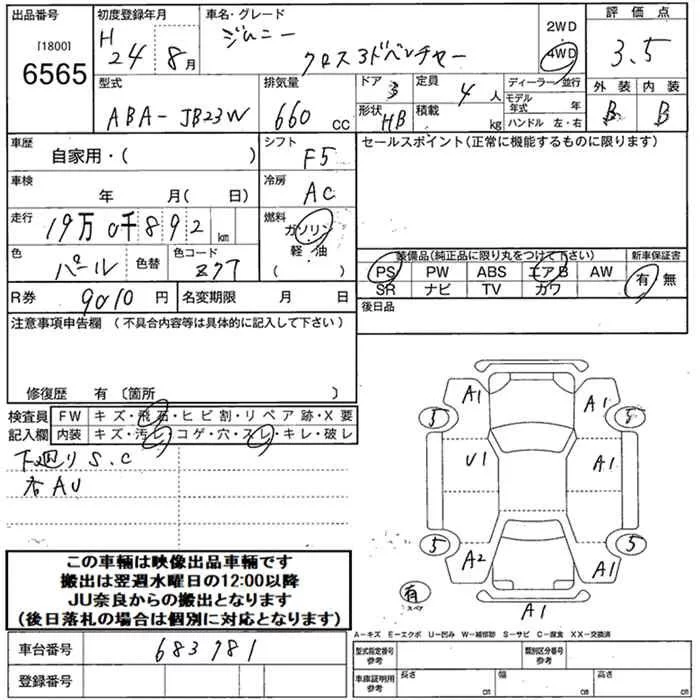 出品番号
[1800]
6565
初度登録年月
H 24 8月
車名・グレード
ジムニー
クロスアドベンチャー
2WD
4WD
評価点
3.5
外装 内装
B B
型式
ABA-JB23W
排気量
660 cc
ドア 3
形状 HB
定員 4人
積載 kg
ディーラー 並行
モデル年式 年
ハンドル 左・右
車歴
自家用・( )
シフト F5
セールスポイント(正常に機能するものに限ります)
車検 年 月( 日)
冷房 AC
走行 19万0千892km
燃料
ガソリン
軽・油
( )
色 パール 色替
色コード Z7T
装備品(純正品に限り丸をつけて下さい)
新車保証書
PS PW ABS エアB AW
SR ナビ TV カワ
有 無
R券 9010円
名変期限 月 日
後日品
注意事項申告欄(不具合内容等は具体的に記入して下さい)
修復歴 有〔箇所 〕
検査員
記入欄
FW キズ・飛石・ヒビ割・リペア跡・X要
内装 キズ・汚レ・コゲ・穴・スレ・キレ・破レ
下廻りS.C
杏AU
A1 A1
5 5
U1 A1
5 5
A2 A1
有
スペア
A1
この車輛は映像出品車輛です
搬出は翌週水曜日の12:00以降
JU奈良からの搬出となります
(後日落札の場合は個別に対応となります)
A-キズ E-エクボ U-凹み W-補修跡 S-サビ C-腐食 XX-交換済
車台番号 683781
登録番号
型式指定番号
参考
類別区分番号
参考
車庫証明用
参考
長さ cm
幅 cm
高さ cm